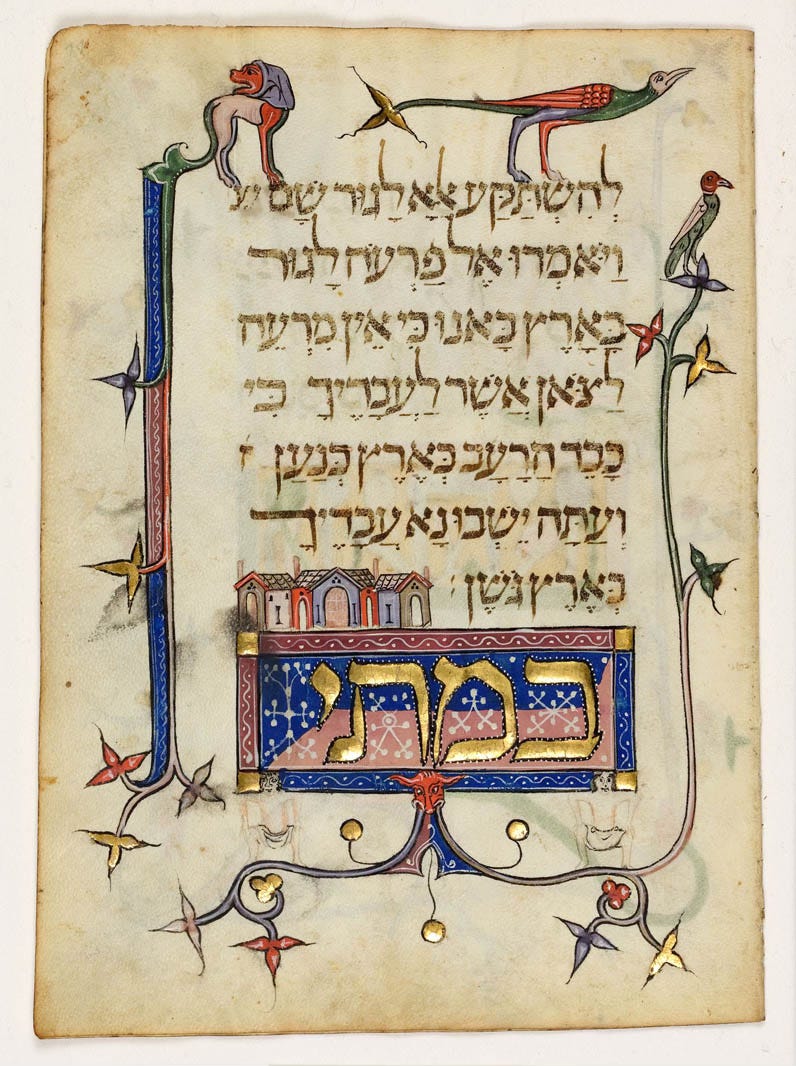 לְהִשְׁתַּקֵּעַ אֶלָּא לָגוּר שָׁם
וַיֹּאמְרוּ אֶל פַּרְעֹה לָגוּר
בָּאָרֶץ בָּאנוּ כִּי אֵין מִרְעֶה
לַצֹּאן אֲשֶׁר לַעֲבָדֶיךָ כִּי
כָבֵד הָרָעָב בְּאֶרֶץ כְּנָעַן
וְעַתָּה יֵשְׁבוּ נָא עֲבָדֶיךָ
בְּאֶרֶץ גֹּשֶׁן :
במתי